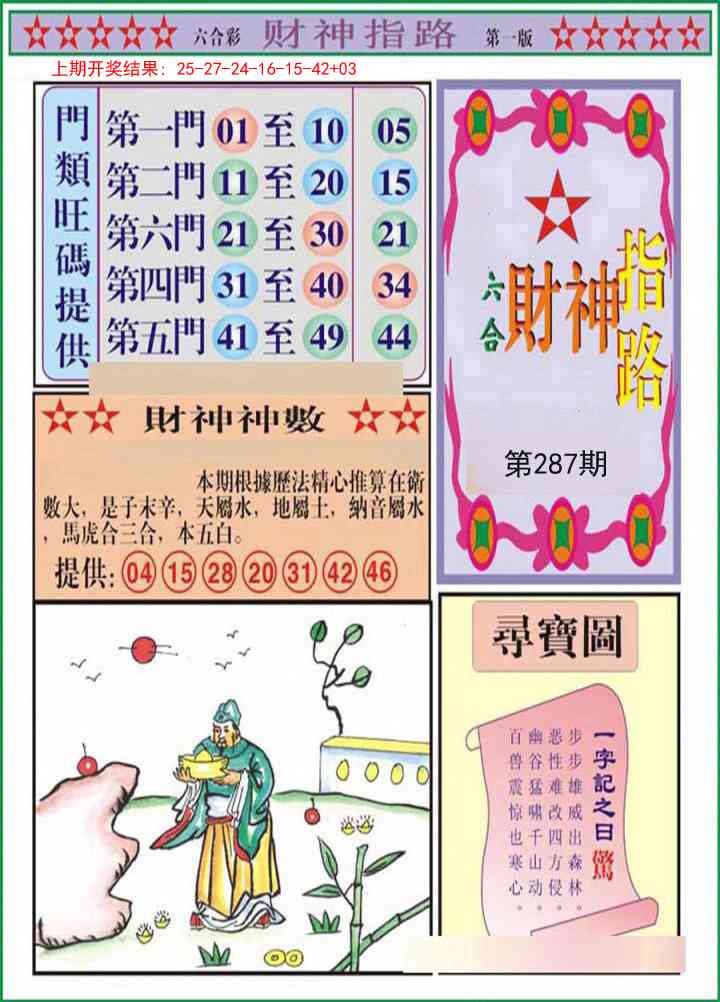 六合彩 财神指路 第一版
上期开奖结果：25-27-24-16-15-42+03
門類旺碼提供
第一門 01 至 10 05
第二門 11 至 20 15
第六門 21 至 30 21
第四門 31 至 40 34
第五門 41 至 49 44
六合
財神指路
第287期
財神神數
本期根據歷法精心推算在衛
數大，是子末辛，天屬水，地屬土，納音屬水
，馬虎合三合，本五白。
提供: 04 15 28 20 31 42 46
尋寶圖
一字記之曰 驚
步步雄威出森林。
恶性难改四方侵。
幽谷猛啸千山动。
百兽震惊也寒心。